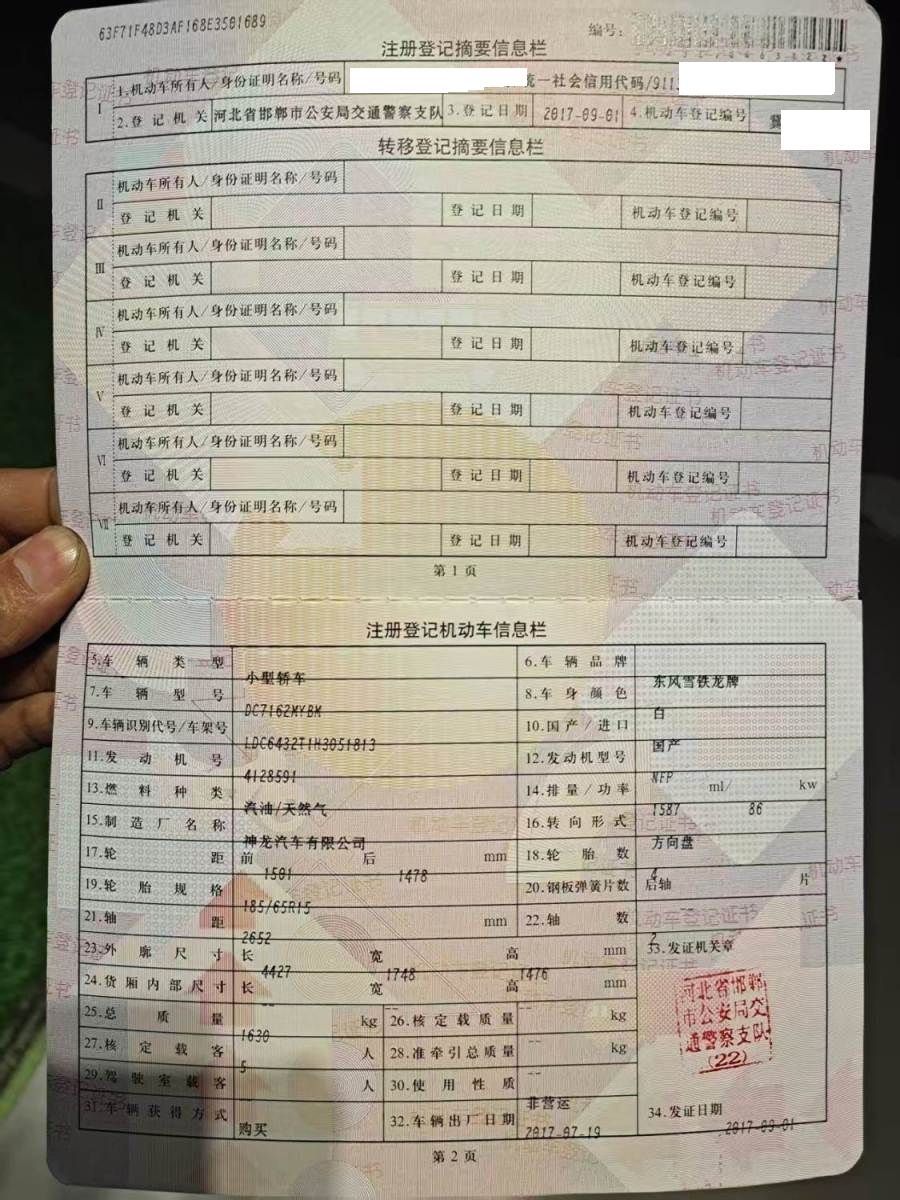 63F71F48D3AF168E3501689 编号:
注册登记摘要信息栏
I 1.机动车所有人/身份证明名称/号码 统一社会信用代码/911
2.登记机关 河北省邯郸市公安局交通警察支队 3.登记日期 2017-09-01 4.机动车登记编号 冀
转移登记摘要信息栏
II 机动车所有人/身份证明名称/号码
登记机关 登记日期 机动车登记编号
III 机动车所有人/身份证明名称/号码
登记机关 登记日期 机动车登记编号
IV 机动车所有人/身份证明名称/号码
登记机关 登记日期 机动车登记编号
V 机动车所有人/身份证明名称/号码
登记机关 登记日期 机动车登记编号
VI 机动车所有人/身份证明名称/号码
登记机关 登记日期 机动车登记编号
VII 机动车所有人/身份证明名称/号码
登记机关 登记日期 机动车登记编号
第1页
注册登记机动车信息栏
5.车辆类型 小型轿车 6.车辆品牌 东风雪铁龙牌
7.车辆型号 DC7162MYBM 8.车身颜色 白
9.车辆识别代号/车架号 LDC6432T1H3051813 10.国产/进口 国产
11.发动机号 4128591 12.发动机型号 NFP
13.燃料种类 汽油/天然气 14.排量/功率 1587 ml/ 86 kw
15.制造厂名称 神龙汽车有限公司 16.转向形式 方向盘
17.轮距 前 1501 后 1478 mm 18.轮胎数 4
19.轮胎规格 185/65R15 20.钢板弹簧片数 后轴 -- 片
21.轴距 2652 mm 22.轴数 2
23.外廓尺寸 长 4427 宽 1748 高 1476 mm 33.发证机关章
24.货厢内部尺寸 长 -- 宽 高 mm
河北省邯郸
市公安局交
通警察支队
(22)
25.总质量 1630 kg 26.核定载质量 -- kg
27.核定载客 5 人 28.准牵引总质量 -- kg
29.驾驶室载客 人 30.使用性质 非营运
31.车辆获得方式 购买 32.车辆出厂日期 2017-07-19 34.发证日期 2017-09-01
第2页